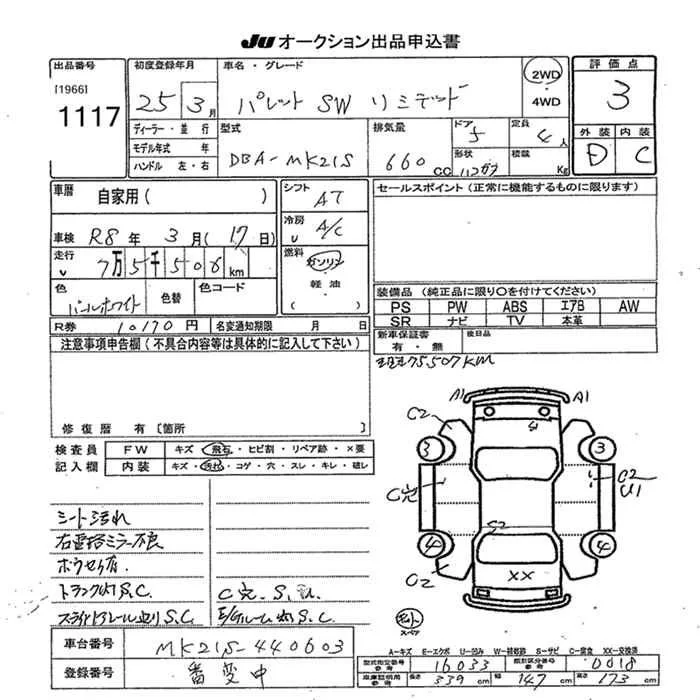 JU オークション出品申込書
出品番号
[1966]
1117
初度登録年月
25 3月
ディーラー・並行
モデル年式 年
ハンドル 左・右
車名・グレード
パレット SW リミテッド
2WD
・
4WD
評価点
3
外装 内装
D C
型式
DBA-MK21S
排気量
660 cc
ドア
5
形状
定員
4人
積載
Kg
車歴
自家用( )
車検 R8年 3月(17日)
走行 7万5千506km
色
パールホワイト
色替
色コード
シフト
AT
冷房
A/C
燃料
ガソリン
・
軽油
セールスポイント(正常に機能するものに限ります)
装備品(純正品に限り〇を付けてください)
PS PW ABS エアB AW
SR ナビ TV 本革
R券 10170円
名変通知期限 月 日
新車保証書
有・無
後日品
75,507KM
注意事項申告欄(不具合内容等は具体的に記入して下さい)
修復歴 有〔箇所 〕
検査員
記入欄
FW キズ・飛石・ヒビ割・リペア跡・×要
内装 キズ・汚れ・コゲ・穴・スレ・キレ・破レ
シート汚れ
右電格ミラー不良
トランク内S.C.
スライドドアレール廻りS.C.
E/Gルーム内S.C.
A1 A1
C2
4
3 3
C2
U1
S2
4 4
C2
XX
スペア
A-キズ E-エクボ U-凹み W-補修跡 S-サビ C-腐食 XX-交換済
車台番号 MK21S-440603
登録番号 番変中
型式指定番号 参考 16033
類別区分番号 参考 0018
車庫証明用 参考 長さ 339cm 幅 147cm 高さ 173cm